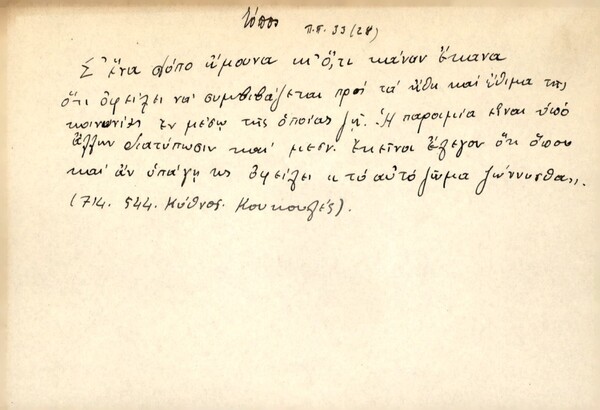 τόπος Π.Π. 33 (28)
Σ' ἕνα τόπο ἤμουνα κι' ὅ,τι κάναν ἔκανα
ὅτι ὀφείλει νὰ συμβιβάζεται πρὸς τὰ ἤθη καὶ ἔθιμα τῆς
κοινωνίας ἐν μέσῳ τῆς ὁποίας ζῇ. Ἡ παροιμία εἶναι ὑπὸ
ἄλλην διατύπωσιν καὶ μεσν. Ἐκεῖνοι ἔλεγον ὅτι ὅπου
καὶ ἂν ὑπάγῃ τις ὀφείλει τὸ αὐτὸ ζῶμα ζώννυσθαι,
(714. 544. Κύθνος. Κουκουλές).